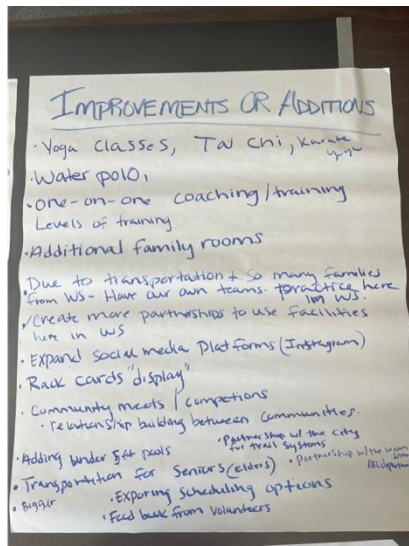 IMPROVEMENTS OR ADDITIONS
· Yoga Classes, Tai Chi, Karate
· Water polo,
· one-on-one coaching/training
Levels of training
· Additional family rooms
· Due to transportation + so many families
from WS - Have our own teams. practice here
in WS.
✓ Create more partnerships to use facilities
here in WS
· Expand Social media Platforms (Instagram)
· Rack cards "display"
· Community meets / competions
· relationship building between communities.
· Partnership w/ the City
for trail systems
· Adding under 5ft pools
· Partnership w/ the warm
· Transportation for Seniors (elders)
· Bigger
· Exporing scheduling options
· Feed back from volunteers